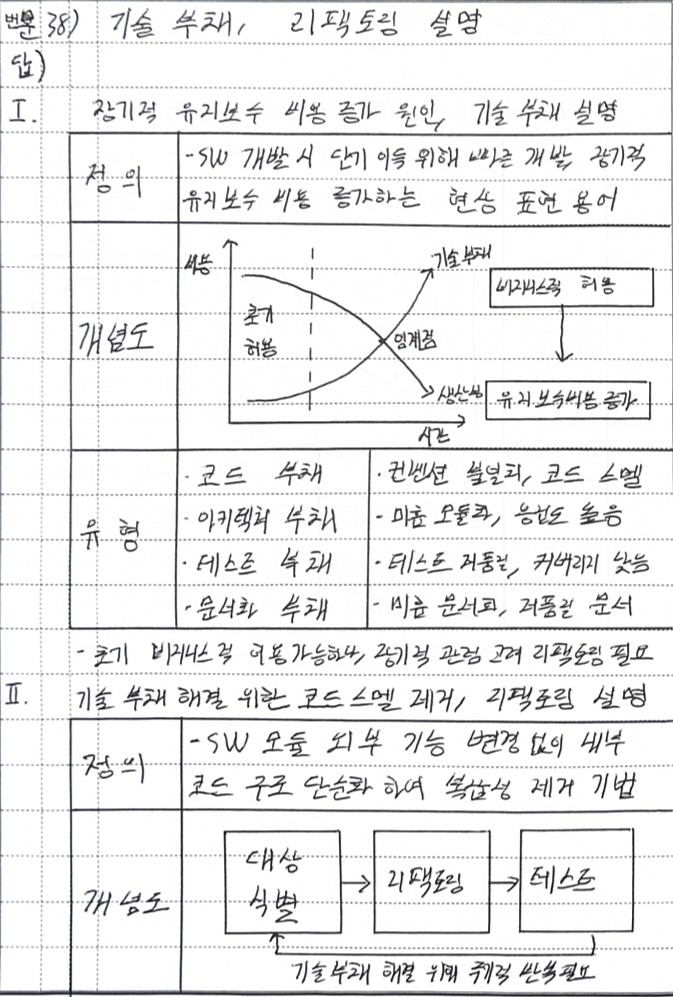 번문 38) 기술 부채, 리팩토링 설명
답)
I. 장기적 유지보수 비용 증가 원인, 기술 부채 설명
정의
-SW 개발 시 단기 이득 위해 빠른 개발, 장기적
유지보수 비용 증가하는 현상 표현 용어
개념도
비용
초기
허용
기술부채
임계점
생산성
시간
비지니스적 허용
유지보수비용 증가
유형
· 코드 부채
· 컨벤션 불일치, 코드 스멜
· 아키텍처 부채
· 미흡 모듈화, 응집도 높음
· 테스트 부채
· 테스트 저품질, 커버리지 낮음
· 문서화 부채
· 미흡 문서화, 저품질 문서
- 초기 비지니스적 허용가능하나, 장기적 관점 고려 리팩토링 필요
II. 기술 부채 해결 위한 코드 스멜 제거, 리팩토링 설명
정의
-SW 모듈 외부 기능 변경 없이 내부
코드 구조 단순화 하여 복잡성 제거 기법
개념도
대상
식별
리팩토링
테스트
기술부채 해결 위해 주기적 반복필요